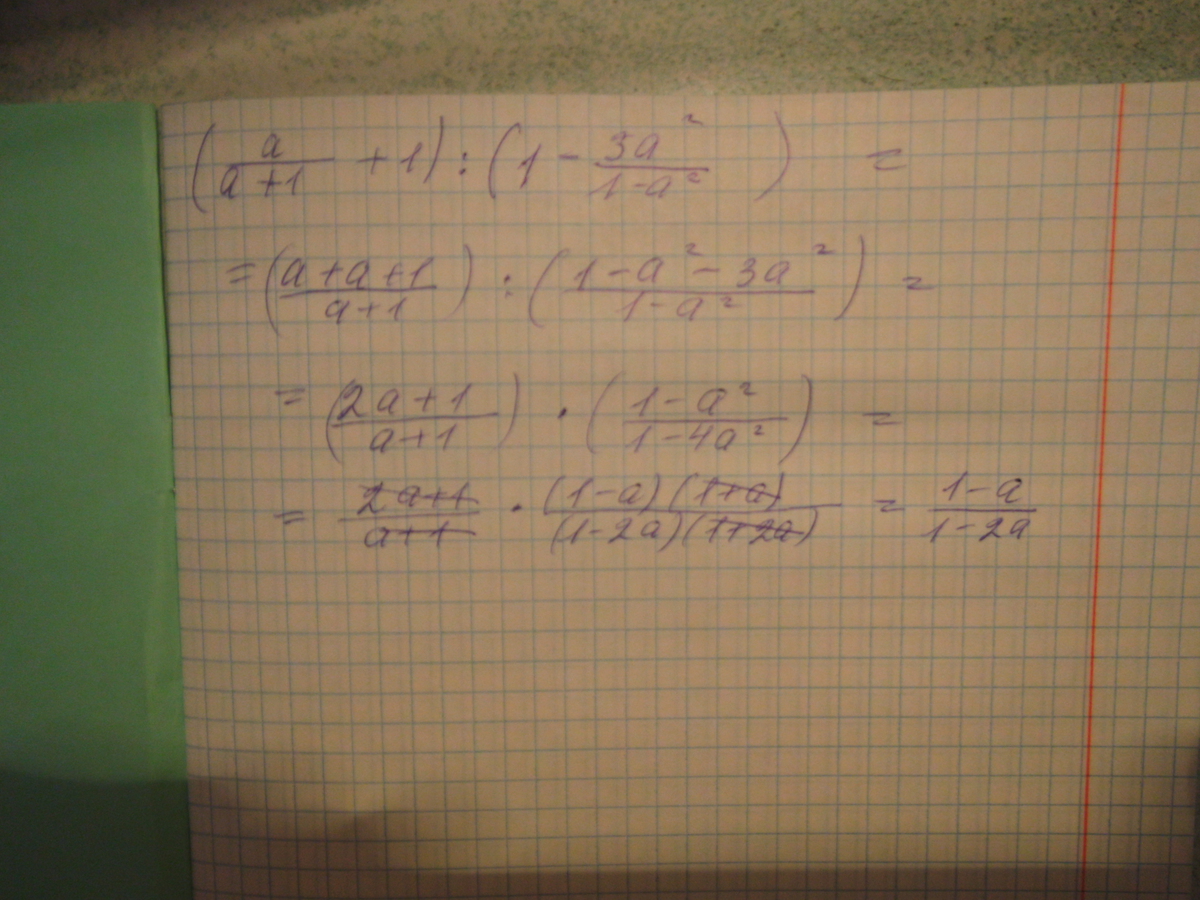 (a/(a+1) + 1) : (1 - 3a²/(1-a²)) =
= ((a+a+1)/(a+1)) : ((1-a²-3a²)/(1-a²)) =
= ((2a+1)/(a+1)) · ((1-a²)/(1-4a²)) =
= (2a+1)/(a+1) · ((1-a)(1+a))/((1-2a)(1+2a)) = (1-a)/(1-2a)